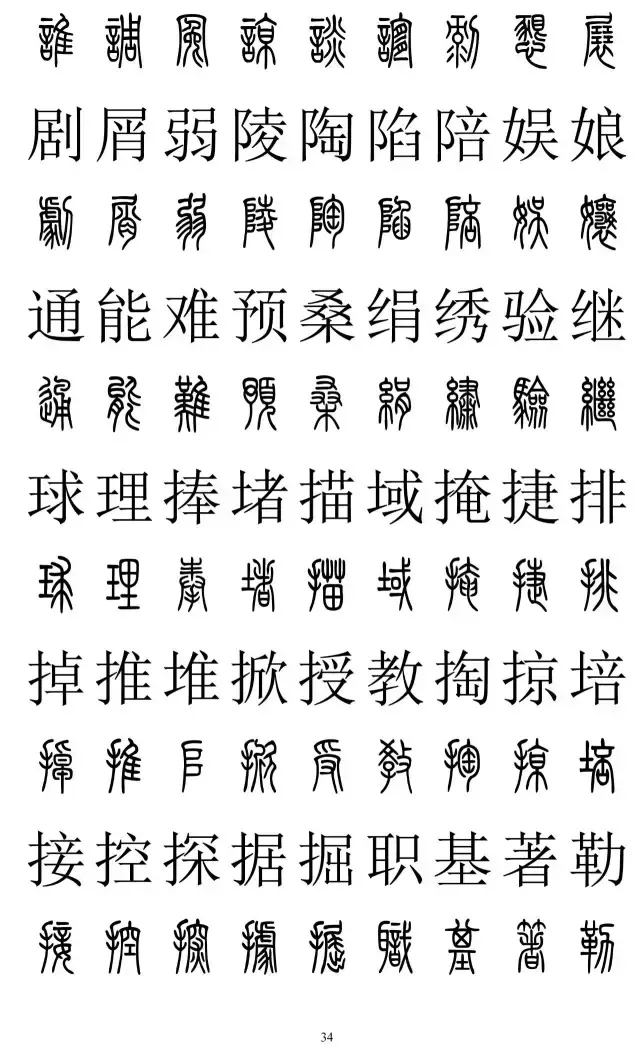 誰調風諒談謬剝懇展
剧屑弱陵陶陷陪娱娘
劇屑弱陵陶陷陪娛孃
通能难预桑绢绣验继
通能難預桑絹繡驗繼
球理捧堵描域掩捷排
球理奉堵描域掩捷排
掉推堆掀授教掏掠培
掉推𠂤掀受教掏掠培
接控探据掘职基著勒
接控探據掘職基著勒
34